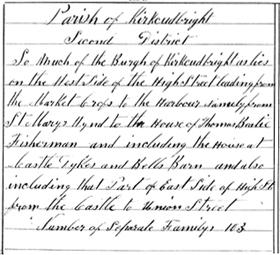 Parish of Kirkcudbright
Second District
So Much of the Burgh of Kirkcudbright as lies
on the West Side of the High Street leading from
the Market Cross to the Harbour namely, from
St Marys Wynd to the House of Thomas
Fisherman and including the House at
Castle Dykes and Bells Barn and also
including that Part of East Side of High St
from the Castle to Union Street
Number of Separate Familys 103